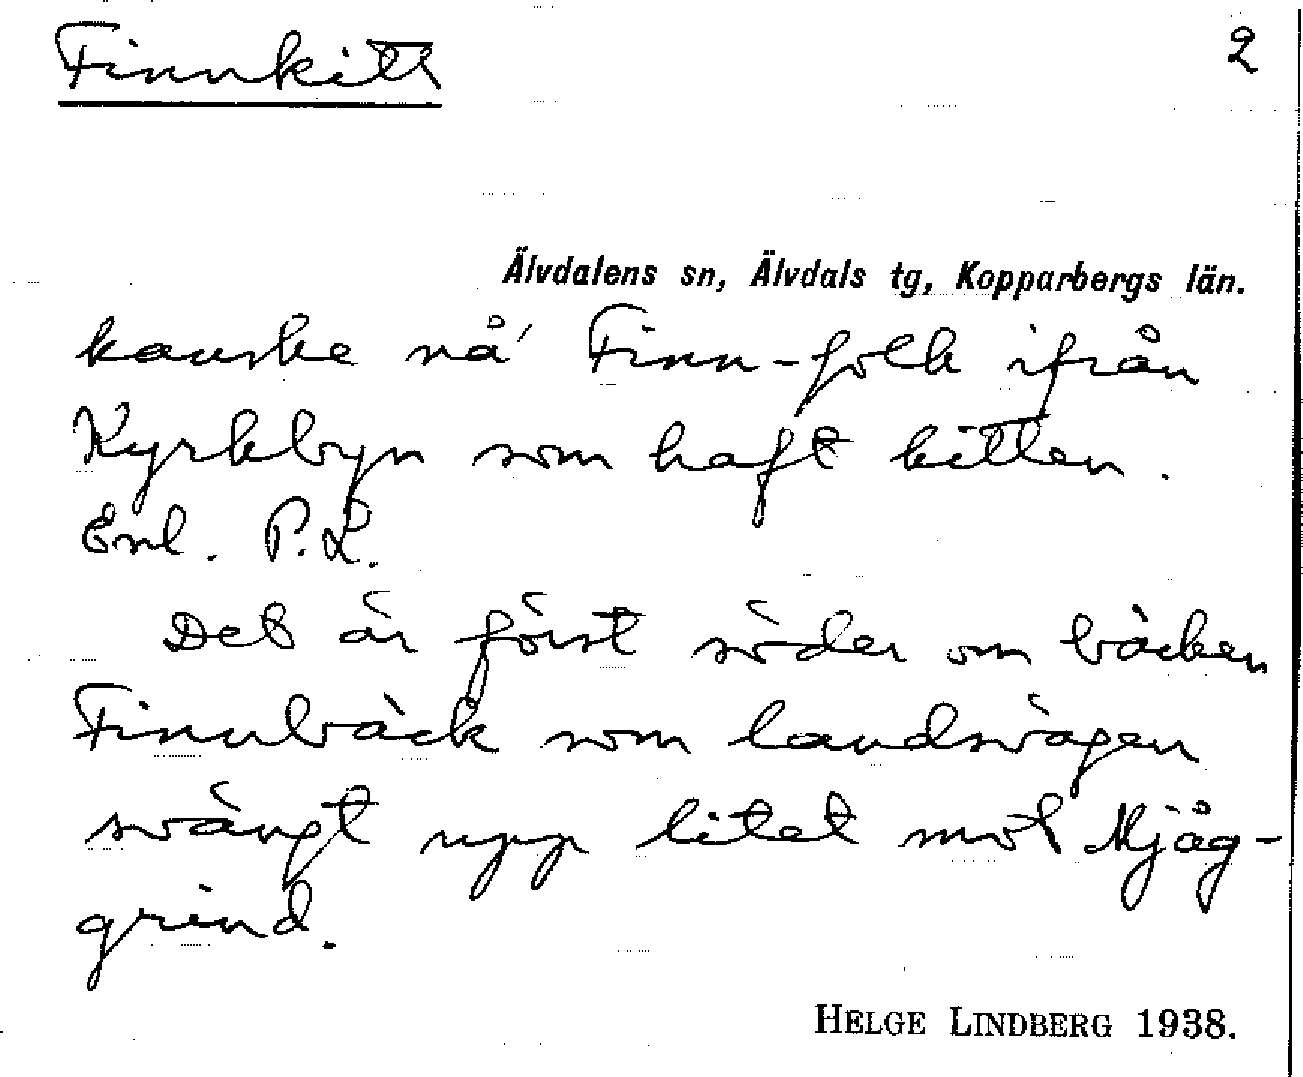 Finnkitt 2
Älvdalens sn, Älvdals tg, Kopparbergs län.
kanske nå' Finn-folk ifrån
Kyrkbyn som haft kitten.
Enl. P.L.
Det är först söder om bäcken
Finnbäck som landsvägen
svängt upp litet mot Mjåg-
grind.
HELGE LINDBERG 1938.